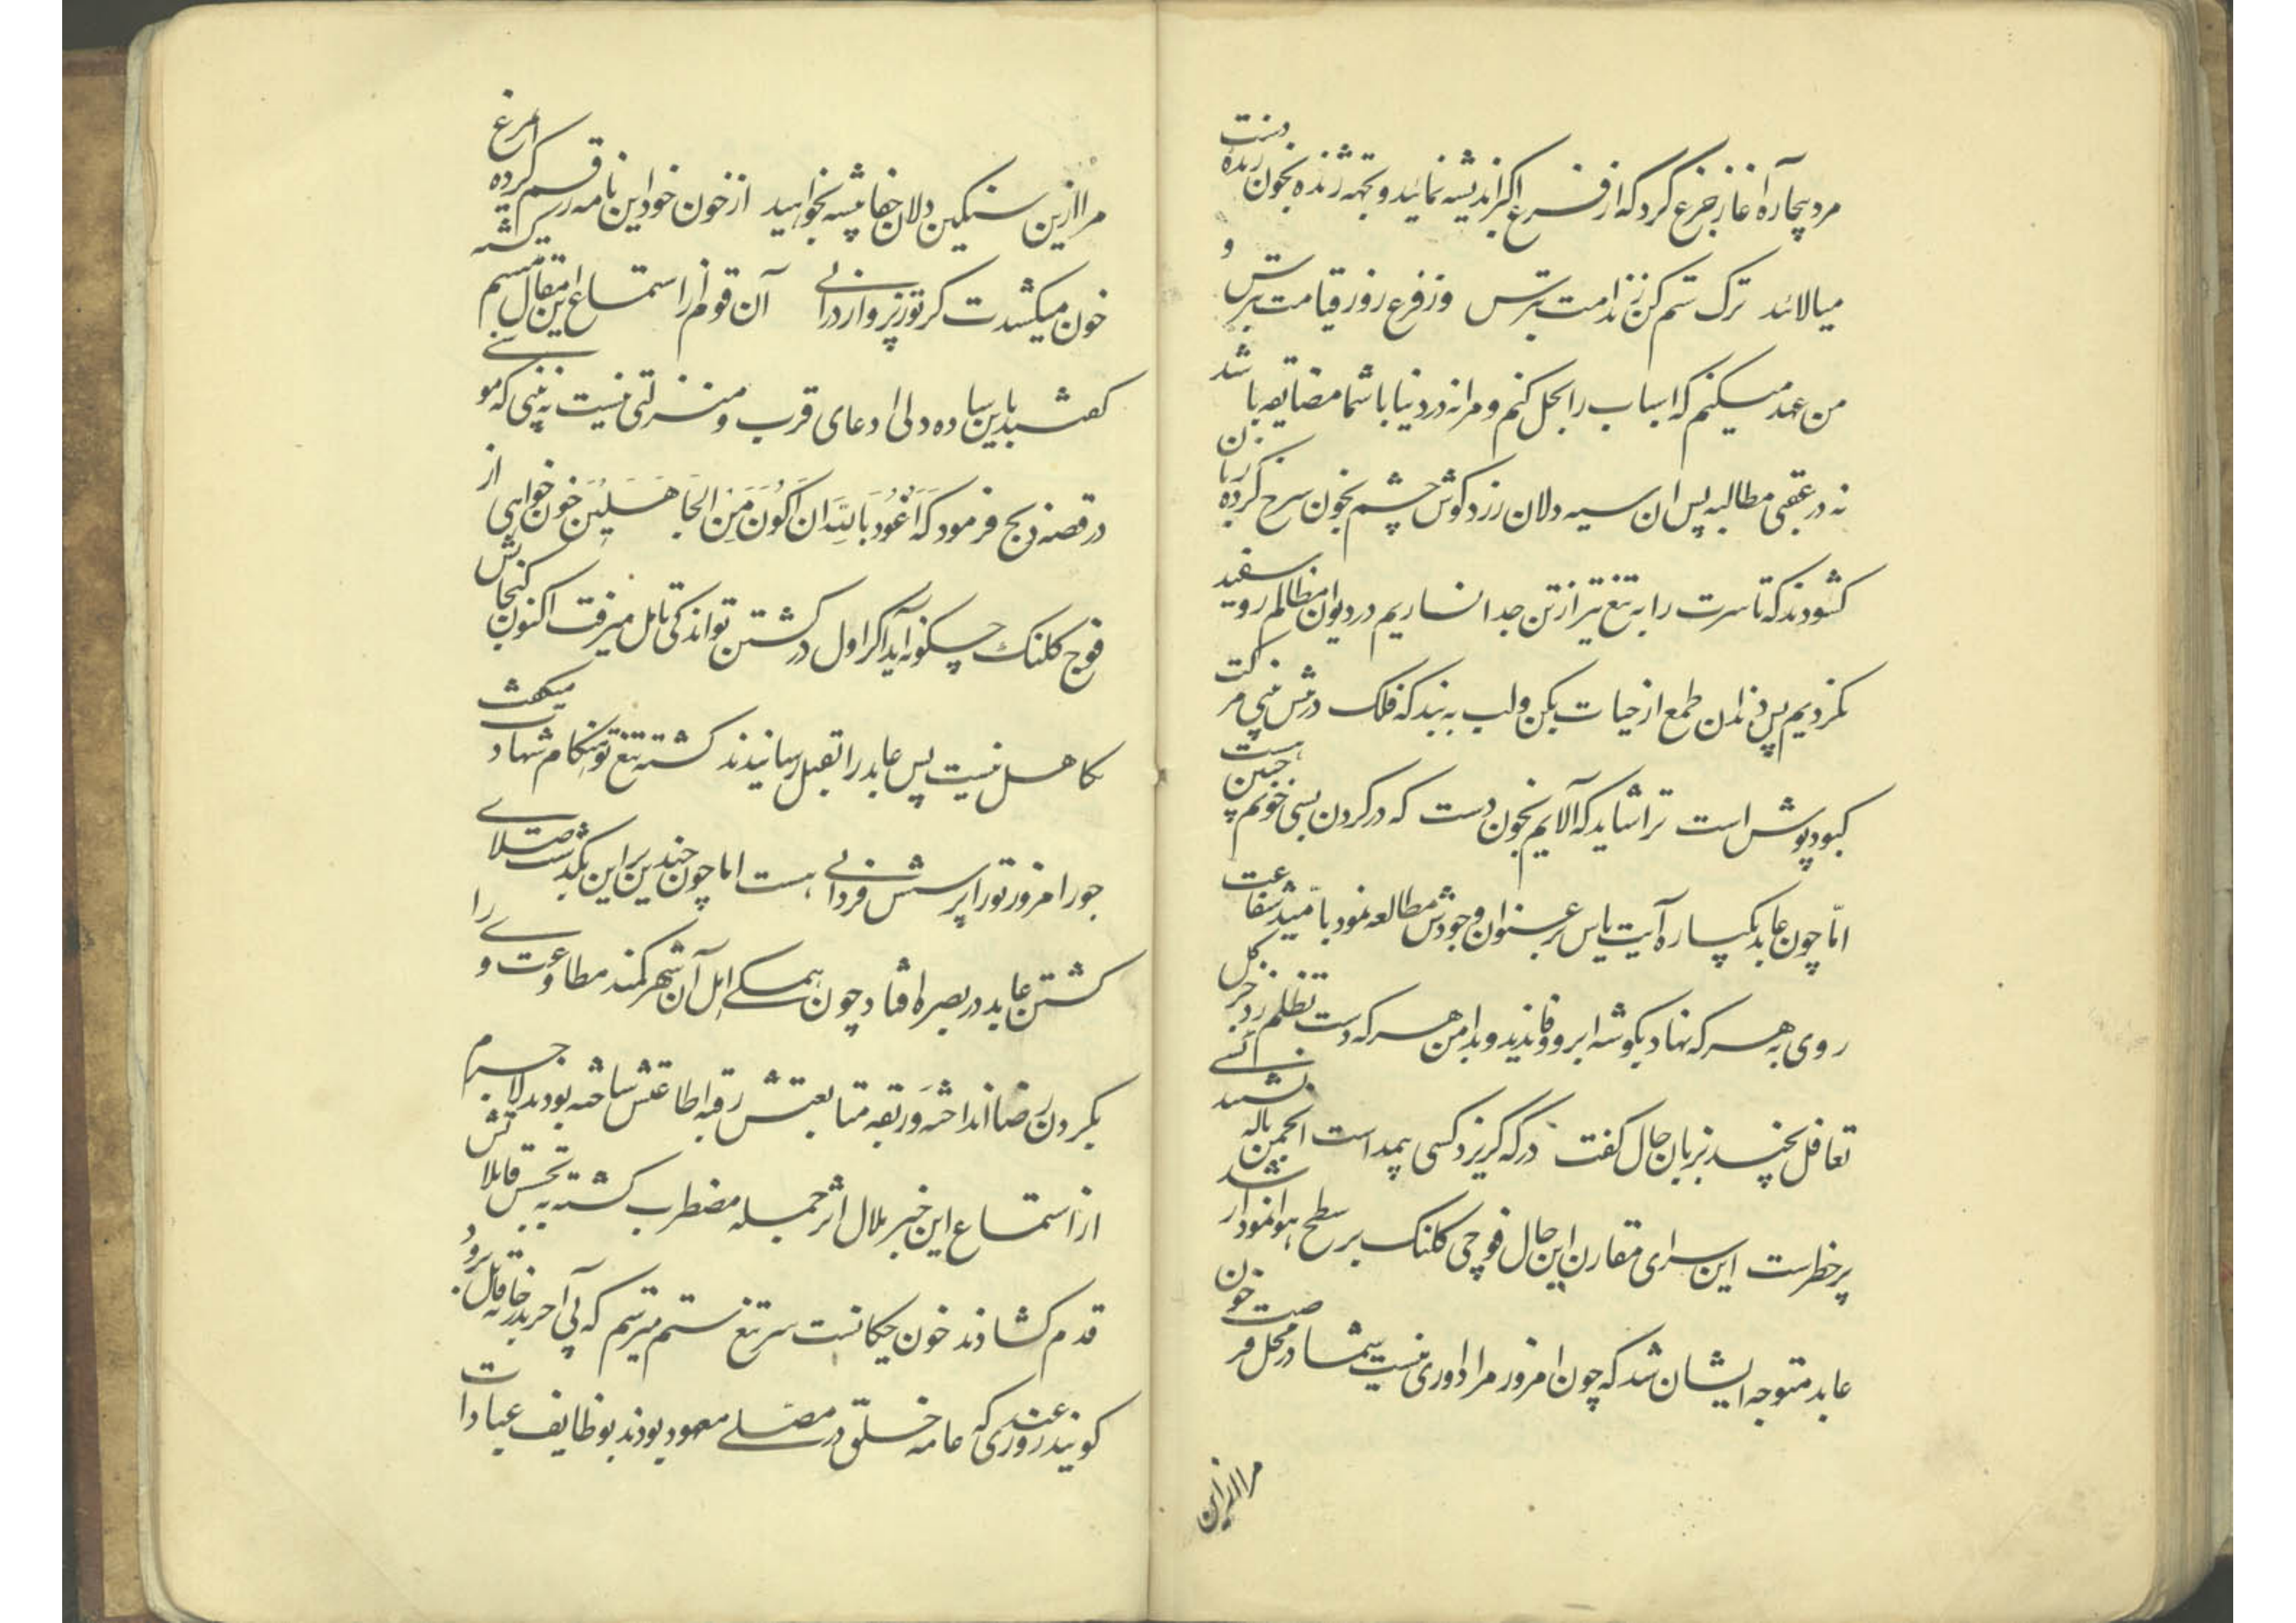 مرد بیچاره آغاز جزع کرد که از فزع اکبر اندیشه نمائید و بجهه ژنده بخون زنده دست
میالائید ترک ستم کن ز ندامت بترس وز فزع روز قیامت بترس و
من عهد میکنم که اسباب را بحل کنم و مرا نه در دنیا با شما مضایقه باشد
نه در عقبی مطالبه پس ان سیه دلان زرد گوش چشم بخون سرخ کرده زبان
کشودند که تا سرت را به تیغ تیز از تن جدا نسازیم در دیوان مظالم روسفید
نگردیم پس دندان طمع از حیات بکن و لب به بند که فلک در
کبود پوش است ترا شاید که آلایم بخون دست که در گردن بسی خونم چنین هست
امّا چون عابد یکباره آیت یاس بر عنوان وجودش مطالعه نمود بامّید شفاعت
روی به هر که نهاد بگوشه ابرو وفا ندید و بدامن هر که دست تظلم زد جز گل
تغافل نچید بزبان حال گفت در که گریزد کسی بیمداست انجمن باله
پر خطرست این سرای مقارن این حال فوجی کلنک بر سطح هوا نمودار شد
عابد متوجه ایشان شد که چون امروز مرا داوری نیست شما در محل فرصت خون
مرا ازین
مرا ازین سنگین دلان جفا پیشه بخواهید از خون خود این نامه رقم کرده ام مرغ
خون میکشدت گر تو ز پرواز درائی آن قوم از استماع این مقال متبسم کشته
گفتند باین ساده دلی ادعای قرب و منزلتی نیست نه بینی که موسی
در قصه ذبح فرمود که اَعُوذُ بِاللَّهِ اَن اَکُونَ مِنَ الجَاهِلِینَ خون خواهی از
فوج کلنک چگونه آید اگر اول در کشتن تو اندکی تامل میرفت اکنون گنجایش
تکاهل نیست پس عابد را بقتل رسانیدند کشته تیغ تو هنگام شهادت میگفت
جور امروز تو را پرسش فردائی هست اما چون چندین بر این بگذشت صلای
کشتن عابد در بصره افتاد چون همگی اهل آن شهر کمند مطاوعت وی را
بگردن رضا انداخته و ربقه متابعتش رقبه اطاعتش ساخته بودند لاجرم
از استماع این خبر ملال اثر جمله مضطرب کشته به تجسس قاتلانش
قدم کشادند خون چکانست سر تیغ ستم میترسم که پی آخر بدر خانه قاتل برود
گویند روز عیدی که عامه خلق در مصلی معهود بودند بوظایف عبادات